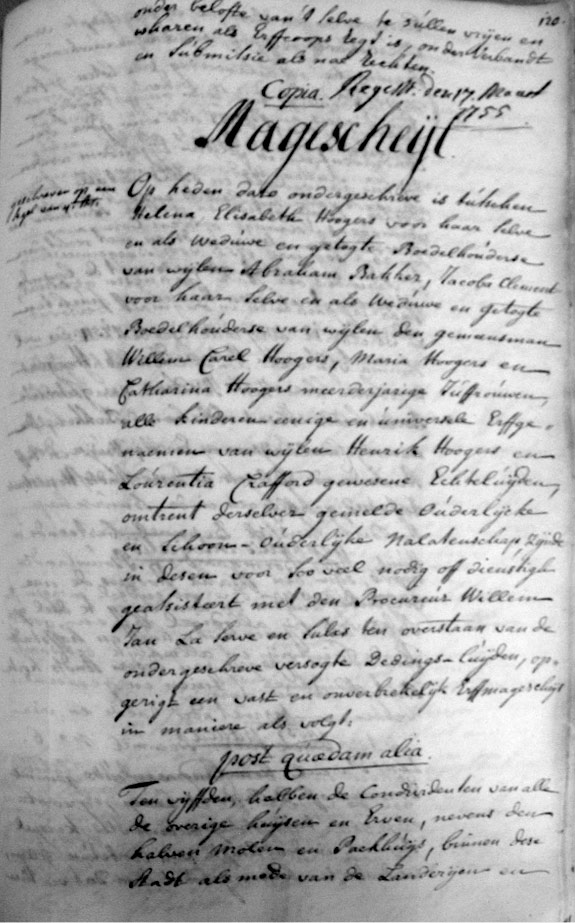 onder belofte van 't selve te sullen vrijen en
120.
waharen als Erffcoops regt is, onder Verbandt
en Submissie als nae rechten.
Copia. Regestt. den 17. Maert
1755
Magescheijt
geschreven op een
Op heden dato ondergeschreve is tusschen
Helena Elisabeth Hoogers voor haar selve
en als Weduwe en getogte Boedelhouderse
van wijlen Abraham Bakker, Jacoba Clement
voor haar selve en als Weduwe en getogte
Boedelhouderse van wijlen den gemeensman
Willem Carel Hoogers, Maria Hoogers en
Catharina Hoogers meerderjarige Juffrouwen,
alle kinderen eenige en universele Erffge-
naemen van wijlen Henrik Hoogers en
Lourentia Crafford gewesene Echteluijden,
omtrent derselver gemelde Ouderlijcke
en Schoon-Ouderlijke Nalatenschap, Zijnde
in desen voor soo veel nodig off dienstigh
geassisteert met den Procureur Willem
Jan La Serve en sulks ten overstaan van de
ondergeschreve versogte Dedings-luijden, op-
gerigt een vast en onverbrekelijk Erffmagescheijt
in maniere als volgt:
post quædam alia.
Ten vijffden, hebben de Condividenten van alle
de overige huijsen en Erven, nevens den
halven molen en Packhuijs, binnen dese
Stadt als mede van de Landerijen en